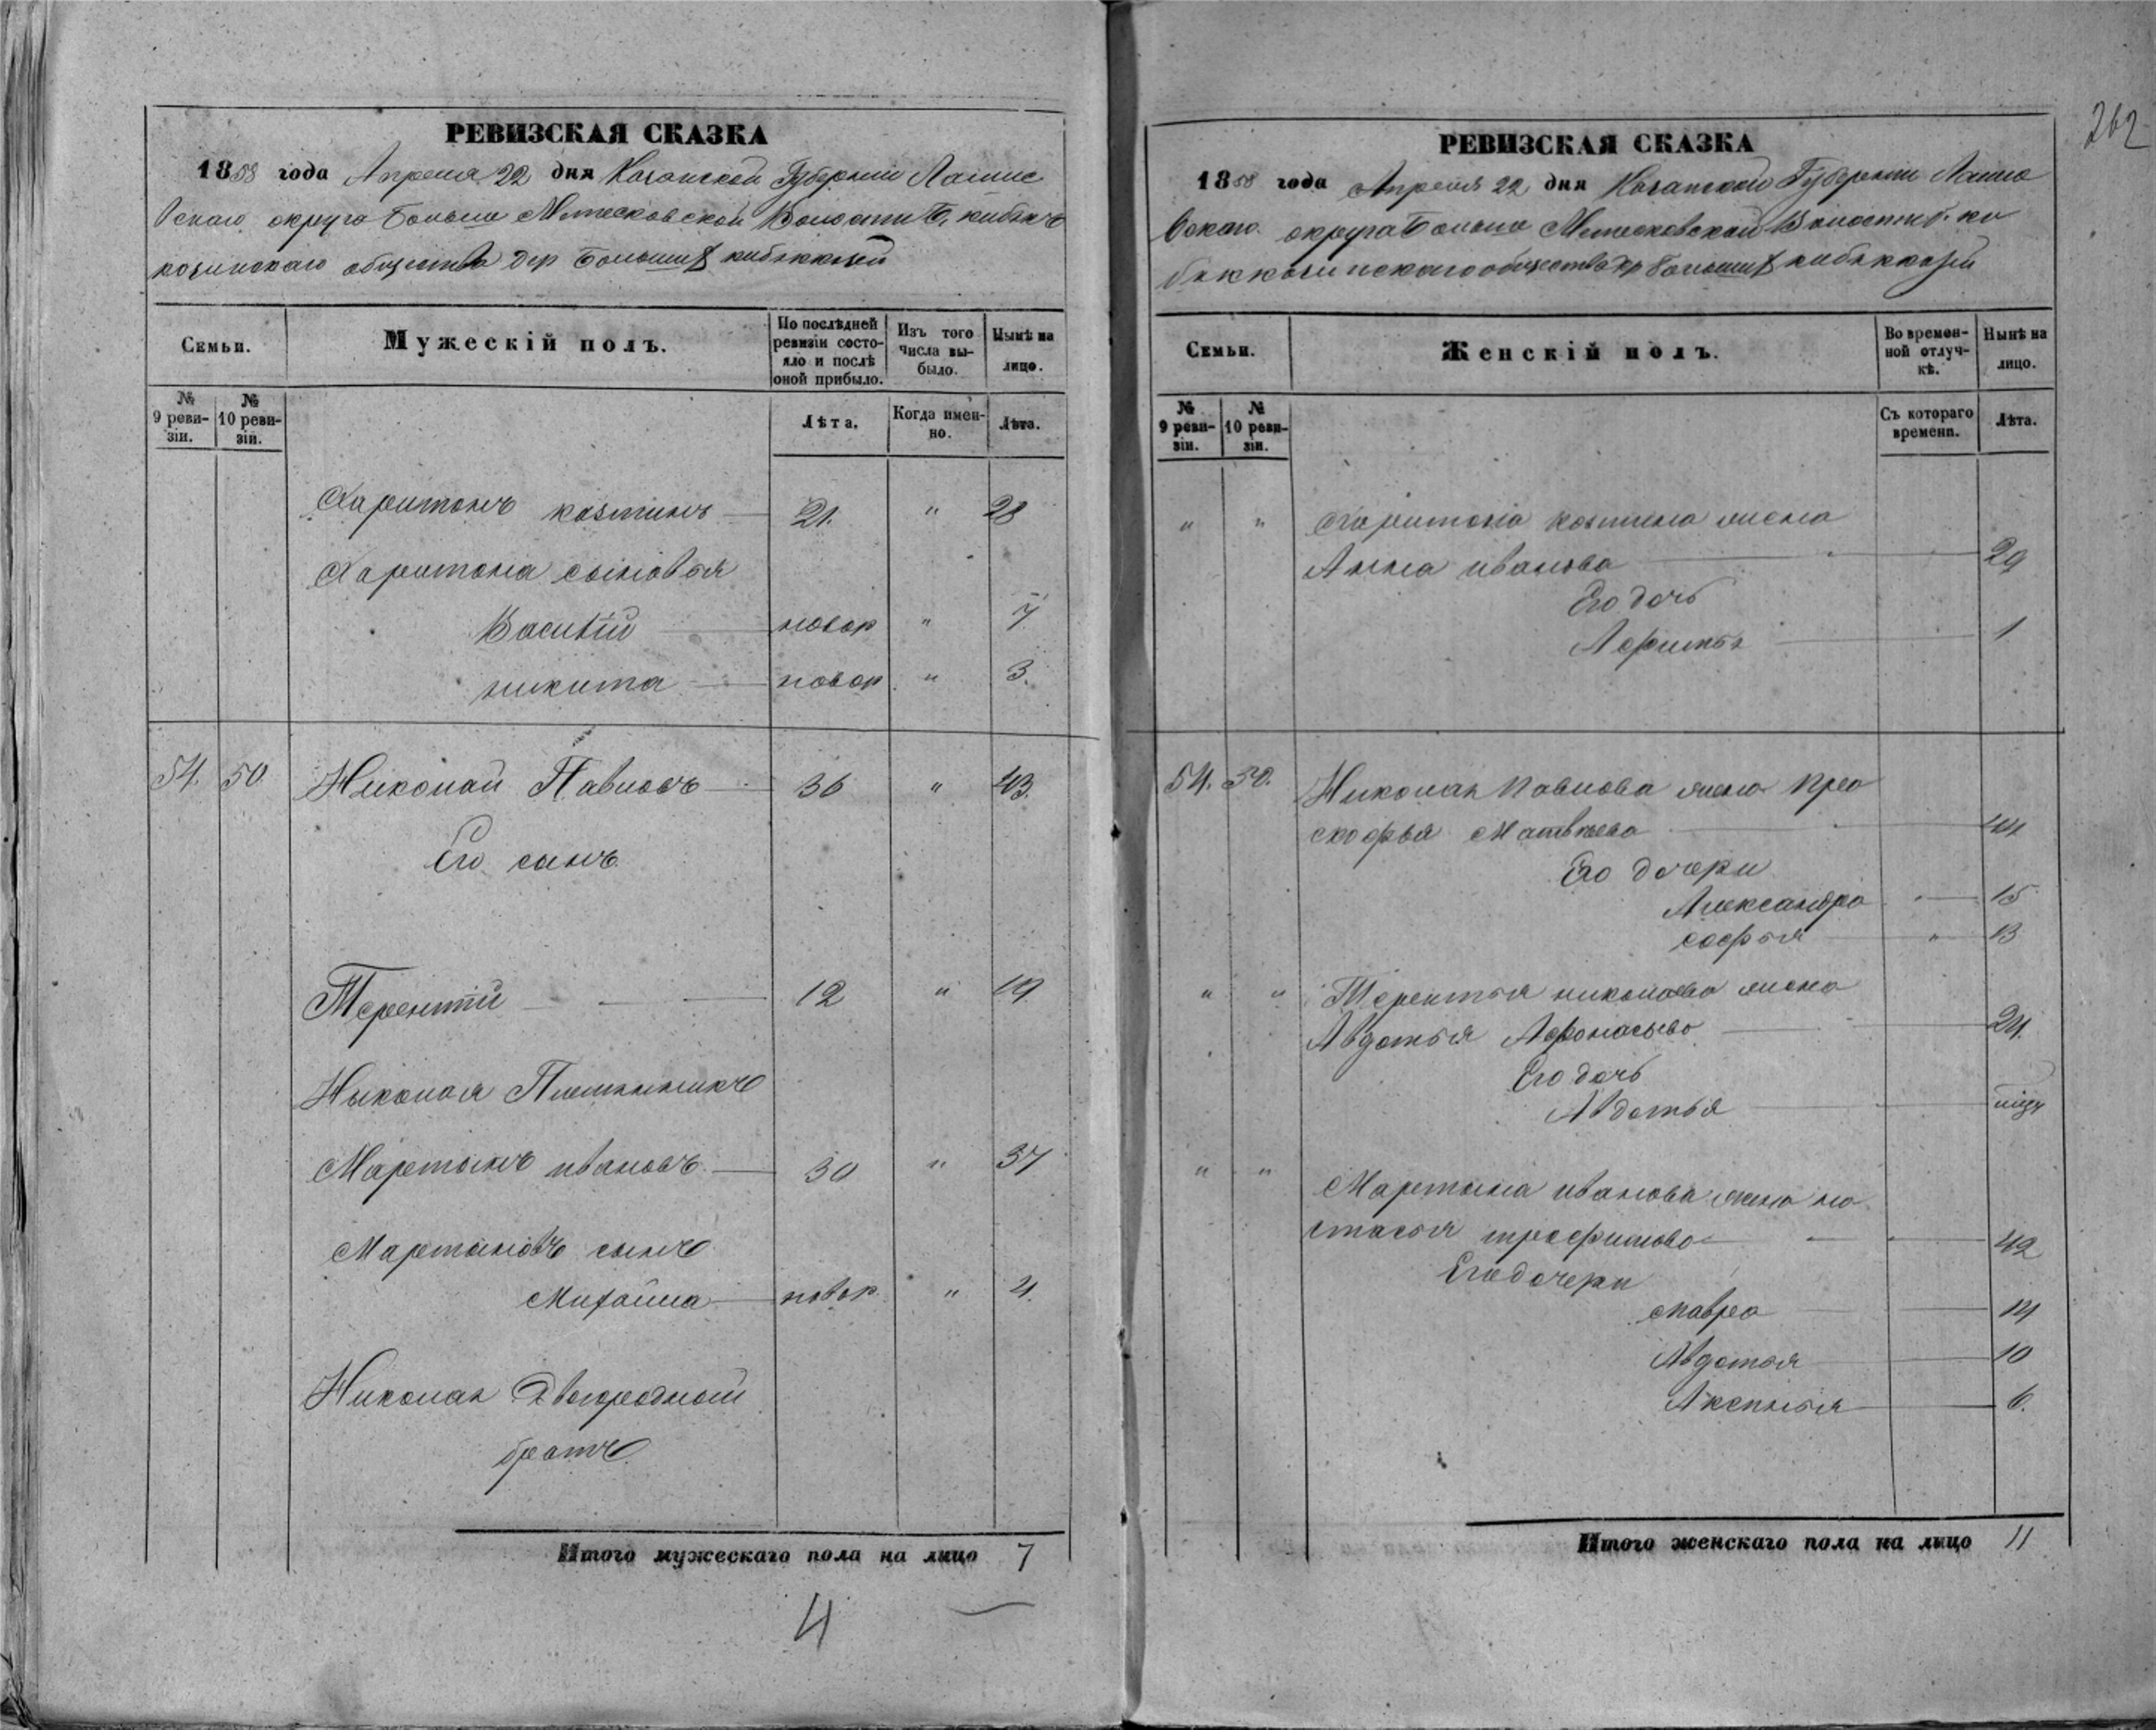 РЕВИЗСКАЯ СКАЗКА
1858 года Апреля 22 дня Казанской Губернии Лаише
вскаго округа Больше Метесковской Волости Б. кибякъ
козинскаго общества дер Большихъ кибяккозей
Семьи.
Мужескій полъ.
По послѣдней ревизіи состо-
яло и послѣ
оной прибыло.
Изъ того
числа вы-
было.
Нынѣ на
лицо.
№
9 реви-
зіи.
№
10 реви-
зіи.
Лѣта.
Когда имен-
но.
Лѣта.
Харитонъ козминъ 21. " 28
Харитона сыновья
Василій новор " 7
никита новор " 3.
54. 50. Николай Павловъ 36 " 43.
Его сынъ
Терентій 12 " 19
Николая Племянникъ
Мартынъ ивановъ 30 " 37
Мартыновъ сынъ
Михайла новор " 4.
Николая Двоюродной
братъ
Итого мужескаго пола на лицо 7
4
262
РЕВИЗСКАЯ СКАЗКА
1858 года Апреля 22 дня Казанской Губернии Лаише
вскаго округа Больше Метесковской Волости б. ки
бяккозинскаго общества дер Большихъ кибяккозей
Семьи.
Женскій полъ.
Во времен-
ной отлуч-
кѣ.
Нынѣ на
лицо.
№
9 реви-
зіи.
№
10 реви-
зіи.
Съ котораго
времени.
Лѣта.
" " Харитона козмина жена
Анна иванова 29
Его дочь
Афимья 1
54. 50. Николая Павлова жена Пра
скофья Матвѣева 44
Его дочери
Александра 15
софья " 13
" " Терентья николаева жена
Авдотья Афонасьева 24.
Его дочь
Авдотья
" " Мартына иванова жена на
стасья трофимова 42
Его дочери
мавра 14
Авдотья 10
Аксинья 6.
Итого женскаго пола на лицо 11